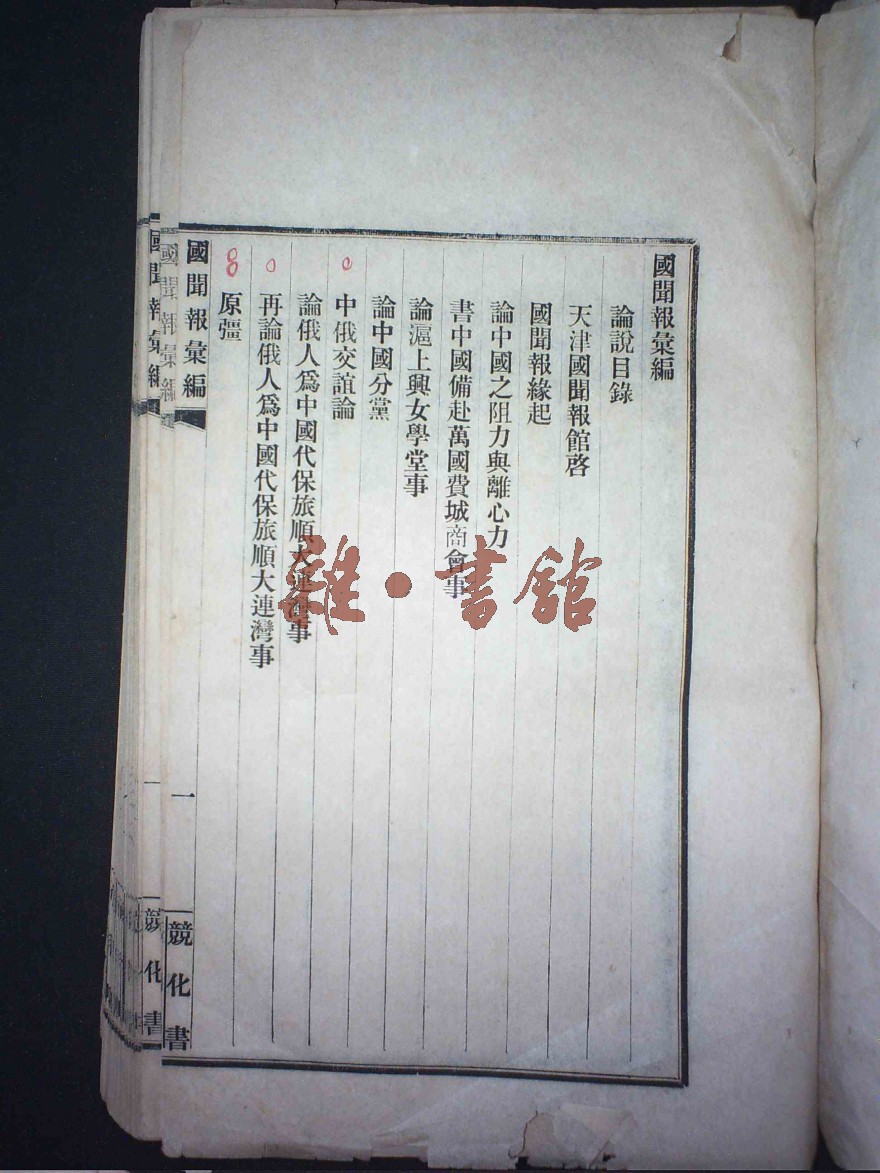 國聞報彙編
論說目錄
天津國聞報館啓
國聞報緣起
論中國之阻力與離心力
書中國備赴萬國費城商會事
論滬上興女學堂事
論中國分黨
中俄交誼論
論俄人爲中國代保旅順大連灣事
再論俄人爲中國代保旅順大連灣事
原彊
國聞報彙編
一
競化書
國聞報彙編
國聞報彙編
一
競化書
雜·書館